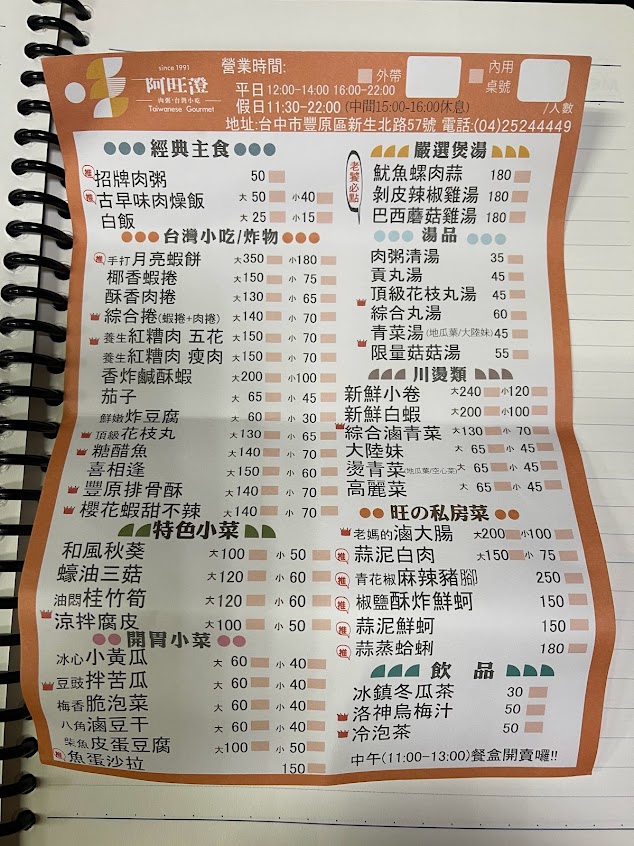 since 1991
阿旺澄
肉粥·台灣小吃
Taiwanese Gourmet
營業時間:
平日12:00-14:00 16:00-22:00
假日11:30-22:00 (中間15:00-16:00休息)
外帶
內用
桌號
/人數
地址:台中市豐原區新生北路57號 電話:(04)25244449
經典主食
推 招牌肉粥 50
推 古早味肉燥飯 大 50 小 40
白飯 大 25 小 15
台灣小吃/炸物
推 手打月亮蝦餅 大350 小180
椰香蝦捲 大150 小 75
酥香肉捲 大130 小 65
綜合捲(蝦捲+肉捲) 大140 小 70
養生 紅糟肉 五花 大150 小 70
養生 紅糟肉 瘦肉 大150 小 70
香炸鹹酥蝦 大200 小100
茄子 大 65 小 45
鮮嫩 炸豆腐 大 60 小 30
頂級 花枝丸 大130 小 65
糖醋魚 大140 小 70
喜相逢 大150 小 60
豐原排骨酥 大140 小 70
櫻花蝦甜不辣 大140 小 70
特色小菜
和風秋葵 大100 小 50
蠔油三菇 大120 小 60
油悶 桂竹筍 大120 小 60
涼拌腐皮 大100 小 50
開胃小菜
冰心 小黃瓜 大 60 小 40
豆豉 拌苦瓜 大 60 小 40
梅香 脆泡菜 大 60 小 40
八角 滷豆干 大 60 小 40
柴魚 皮蛋豆腐 大100 小 50
推 魚蛋沙拉 150
老饕必點
嚴選煲湯
魷魚螺肉蒜 180
剝皮辣椒雞湯 180
巴西蘑菇雞湯 180
湯品
肉粥清湯 35
貢丸湯 45
頂級花枝丸湯 45
綜合丸湯 60
青菜湯(地瓜葉/大陸妹) 45
限量菇菇湯 55
川燙類
新鮮小卷 大240 小120
新鮮白蝦 大200 小100
綜合滷青菜 大130 小 70
大陸妹 大 65 小 45
燙青菜(地瓜葉/空心菜) 大 65 小 45
高麗菜 大 65 小 45
旺の私房菜
老媽的 滷大腸 大200 小100
推 蒜泥白肉 大150 小 75
推 青花椒 麻辣豬腳 250
推 椒鹽酥炸鮮蚵 150
推 蒜泥鮮蚵 150
推 蒜蒸蛤蜊 180
飲品
冰鎮冬瓜茶 30
洛神烏梅汁 50
冷泡茶 50
中午(11:00-13:00)餐盒開賣囉!!